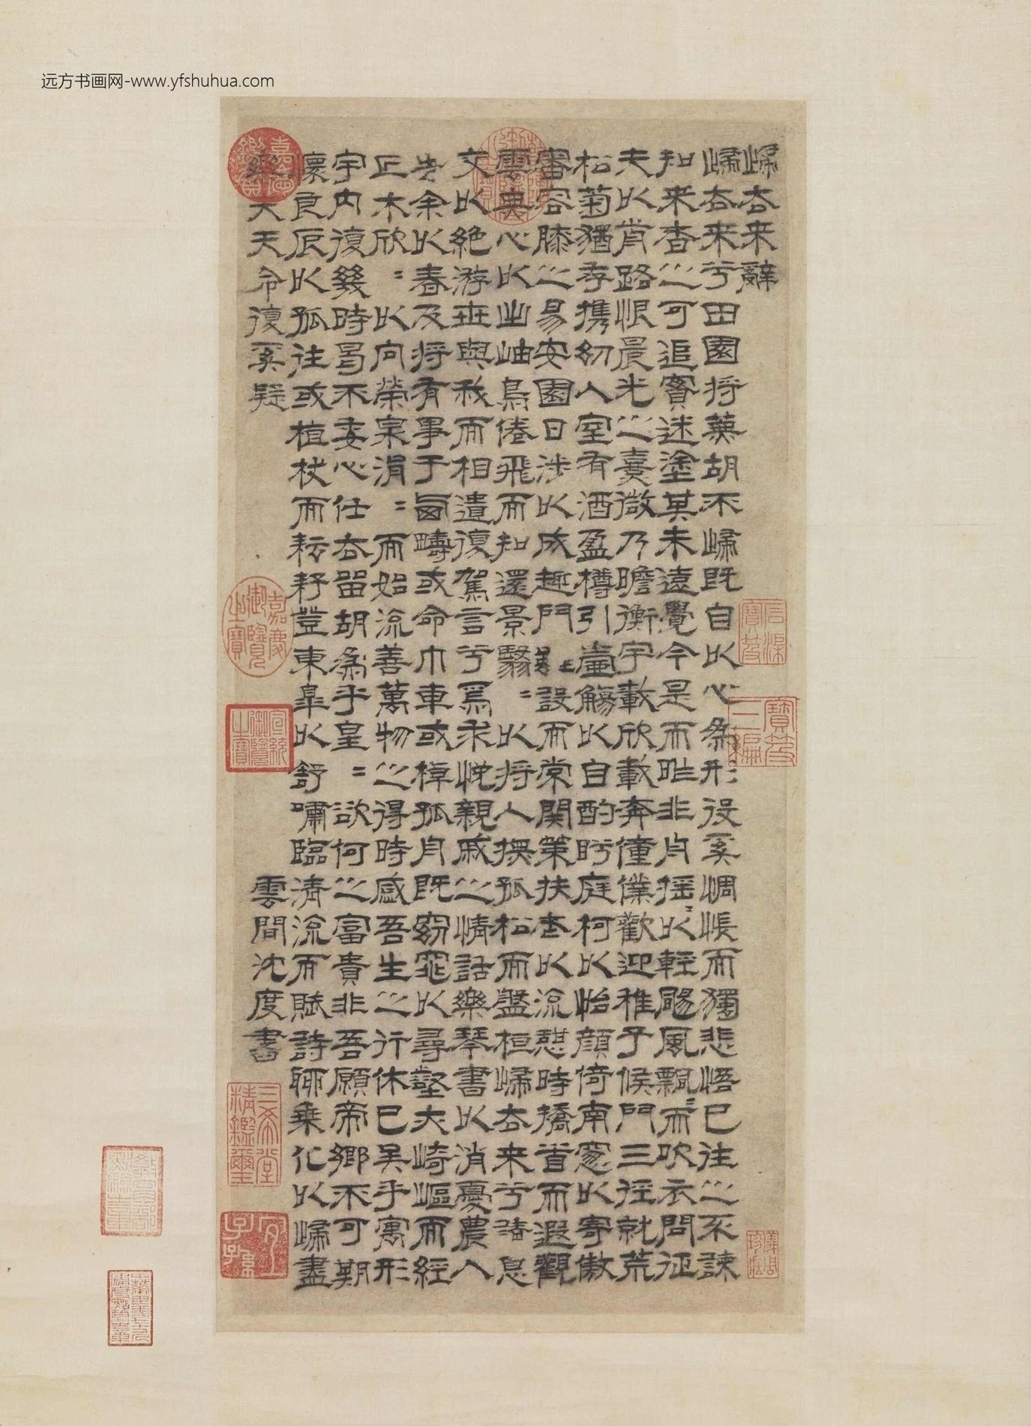 远方书画网-www.yfshuhua.com
歸去來辭
歸去来兮田園将蕪胡不歸既自以心為形役奚惆悵而獨悲悟已往之不諫
知来者之可追實迷塗其未遠覺今是而昨非舟摇〻以輕颺風飄〻而吹衣問征
夫以前路恨晨光之熹微乃瞻衡宇載欣載奔僮僕歡迎稚子候門三徑就荒
松菊猶存携幼入室有酒盈樽引壺觴以自酌眄庭柯以怡顔倚南窻以寄傲
審容膝之易安園日涉以成趣門雖設而常関策扶老以流憩時矯首而遐觀
雲無心以出岫鳥倦飛而知還景翳〻以将入撫孤松而盤桓歸去来兮請息
交以絶游世與我而相遺復駕言兮焉求悅親戚之情話樂琴書以消憂農人
告余以春及将有事于西疇或命巾車或棹孤舟既窈窕以尋壑夫崎嶇而經
丘木欣〻以向榮泉涓〻而始流善萬物之得時感吾生之行休已矣乎寓形
宇内復幾時曷不委心任去留胡為乎皇〻欲何之富貴非吾願帝鄉不可期
懷良辰以孤往或植杖而耘耔登東皋以舒嘯臨清流而賦詩聊乘化以歸盡
樂夫天命復奚疑
雲間沈度書
嘉慶御覽之寶
宣統御覽之寶
三希堂精鑑璽
宜子孫